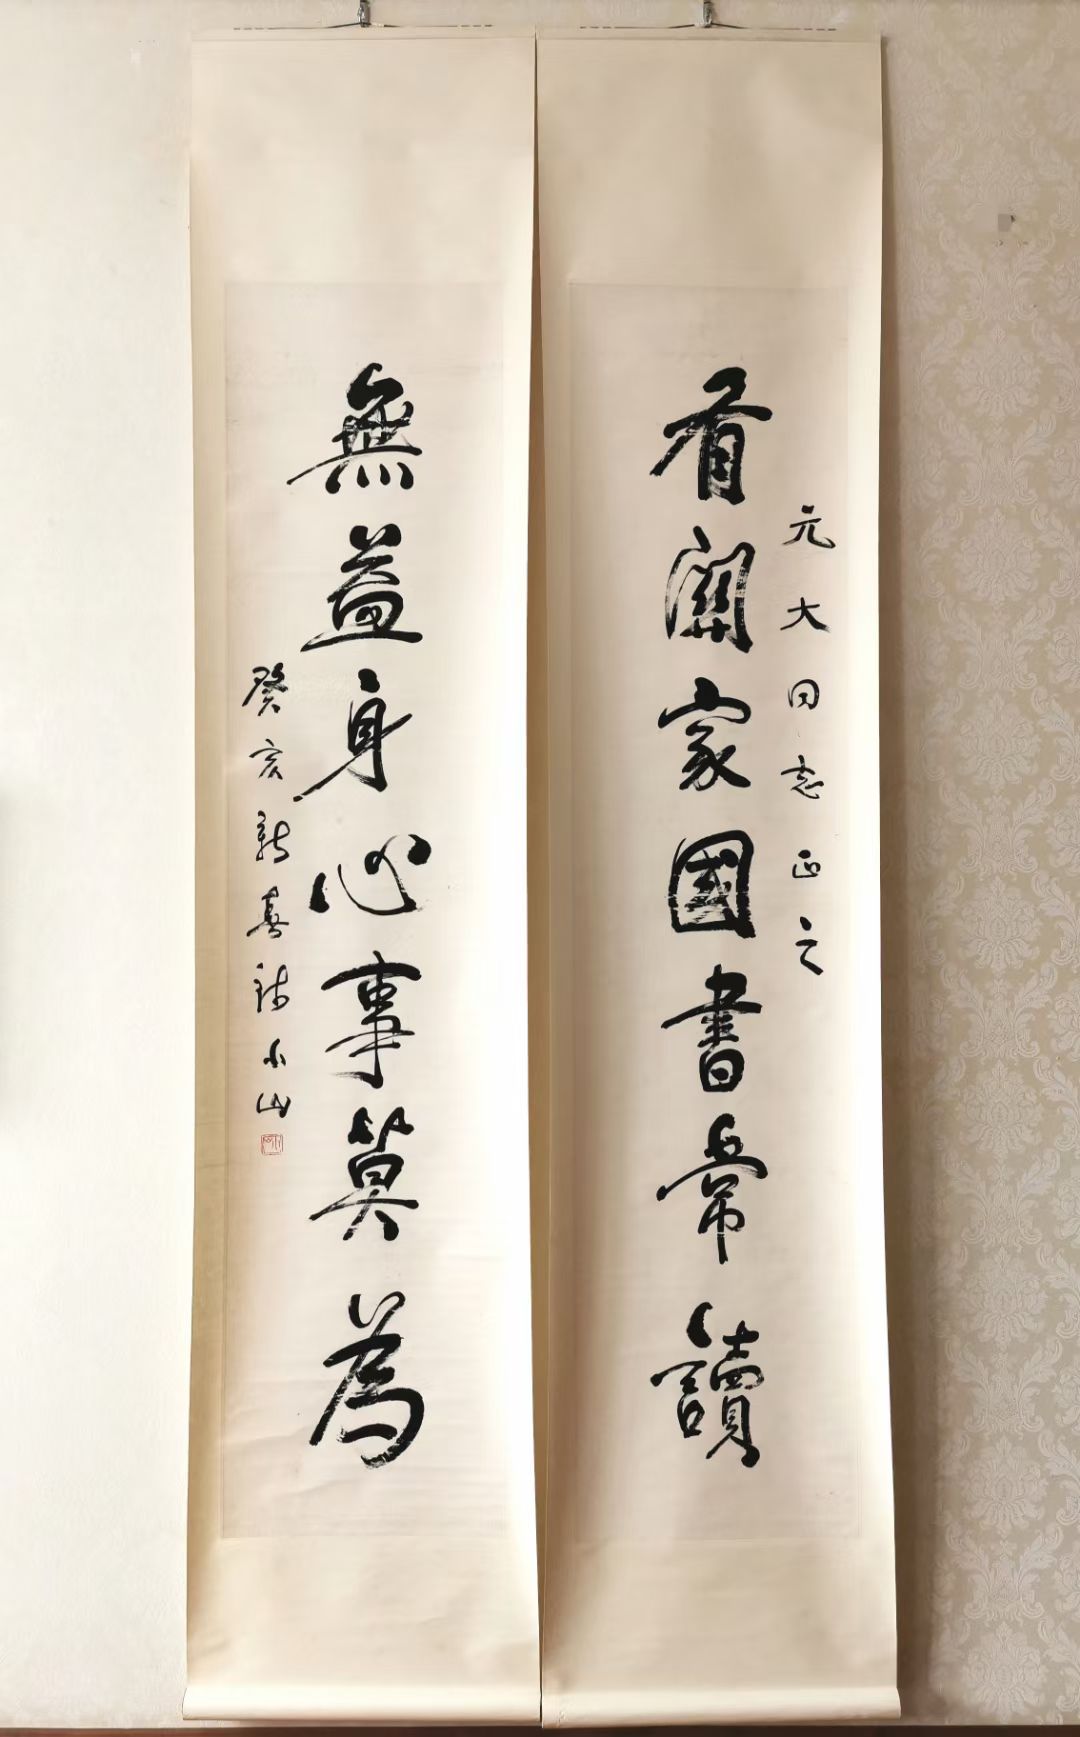 有關家國書常讀
元大同志正之
無益身心事莫為
癸亥新春錢小山